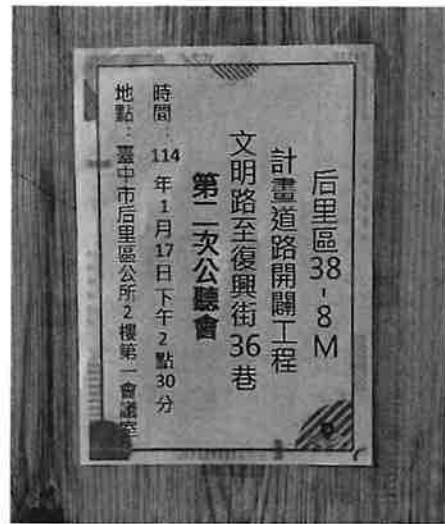 后里區38-8M
計畫道路開闢工程
文明路至復興街36巷
第二次公聽會
時間：114年1月17日下午2點30分
地點：臺中市后里區公所2樓第一會議室